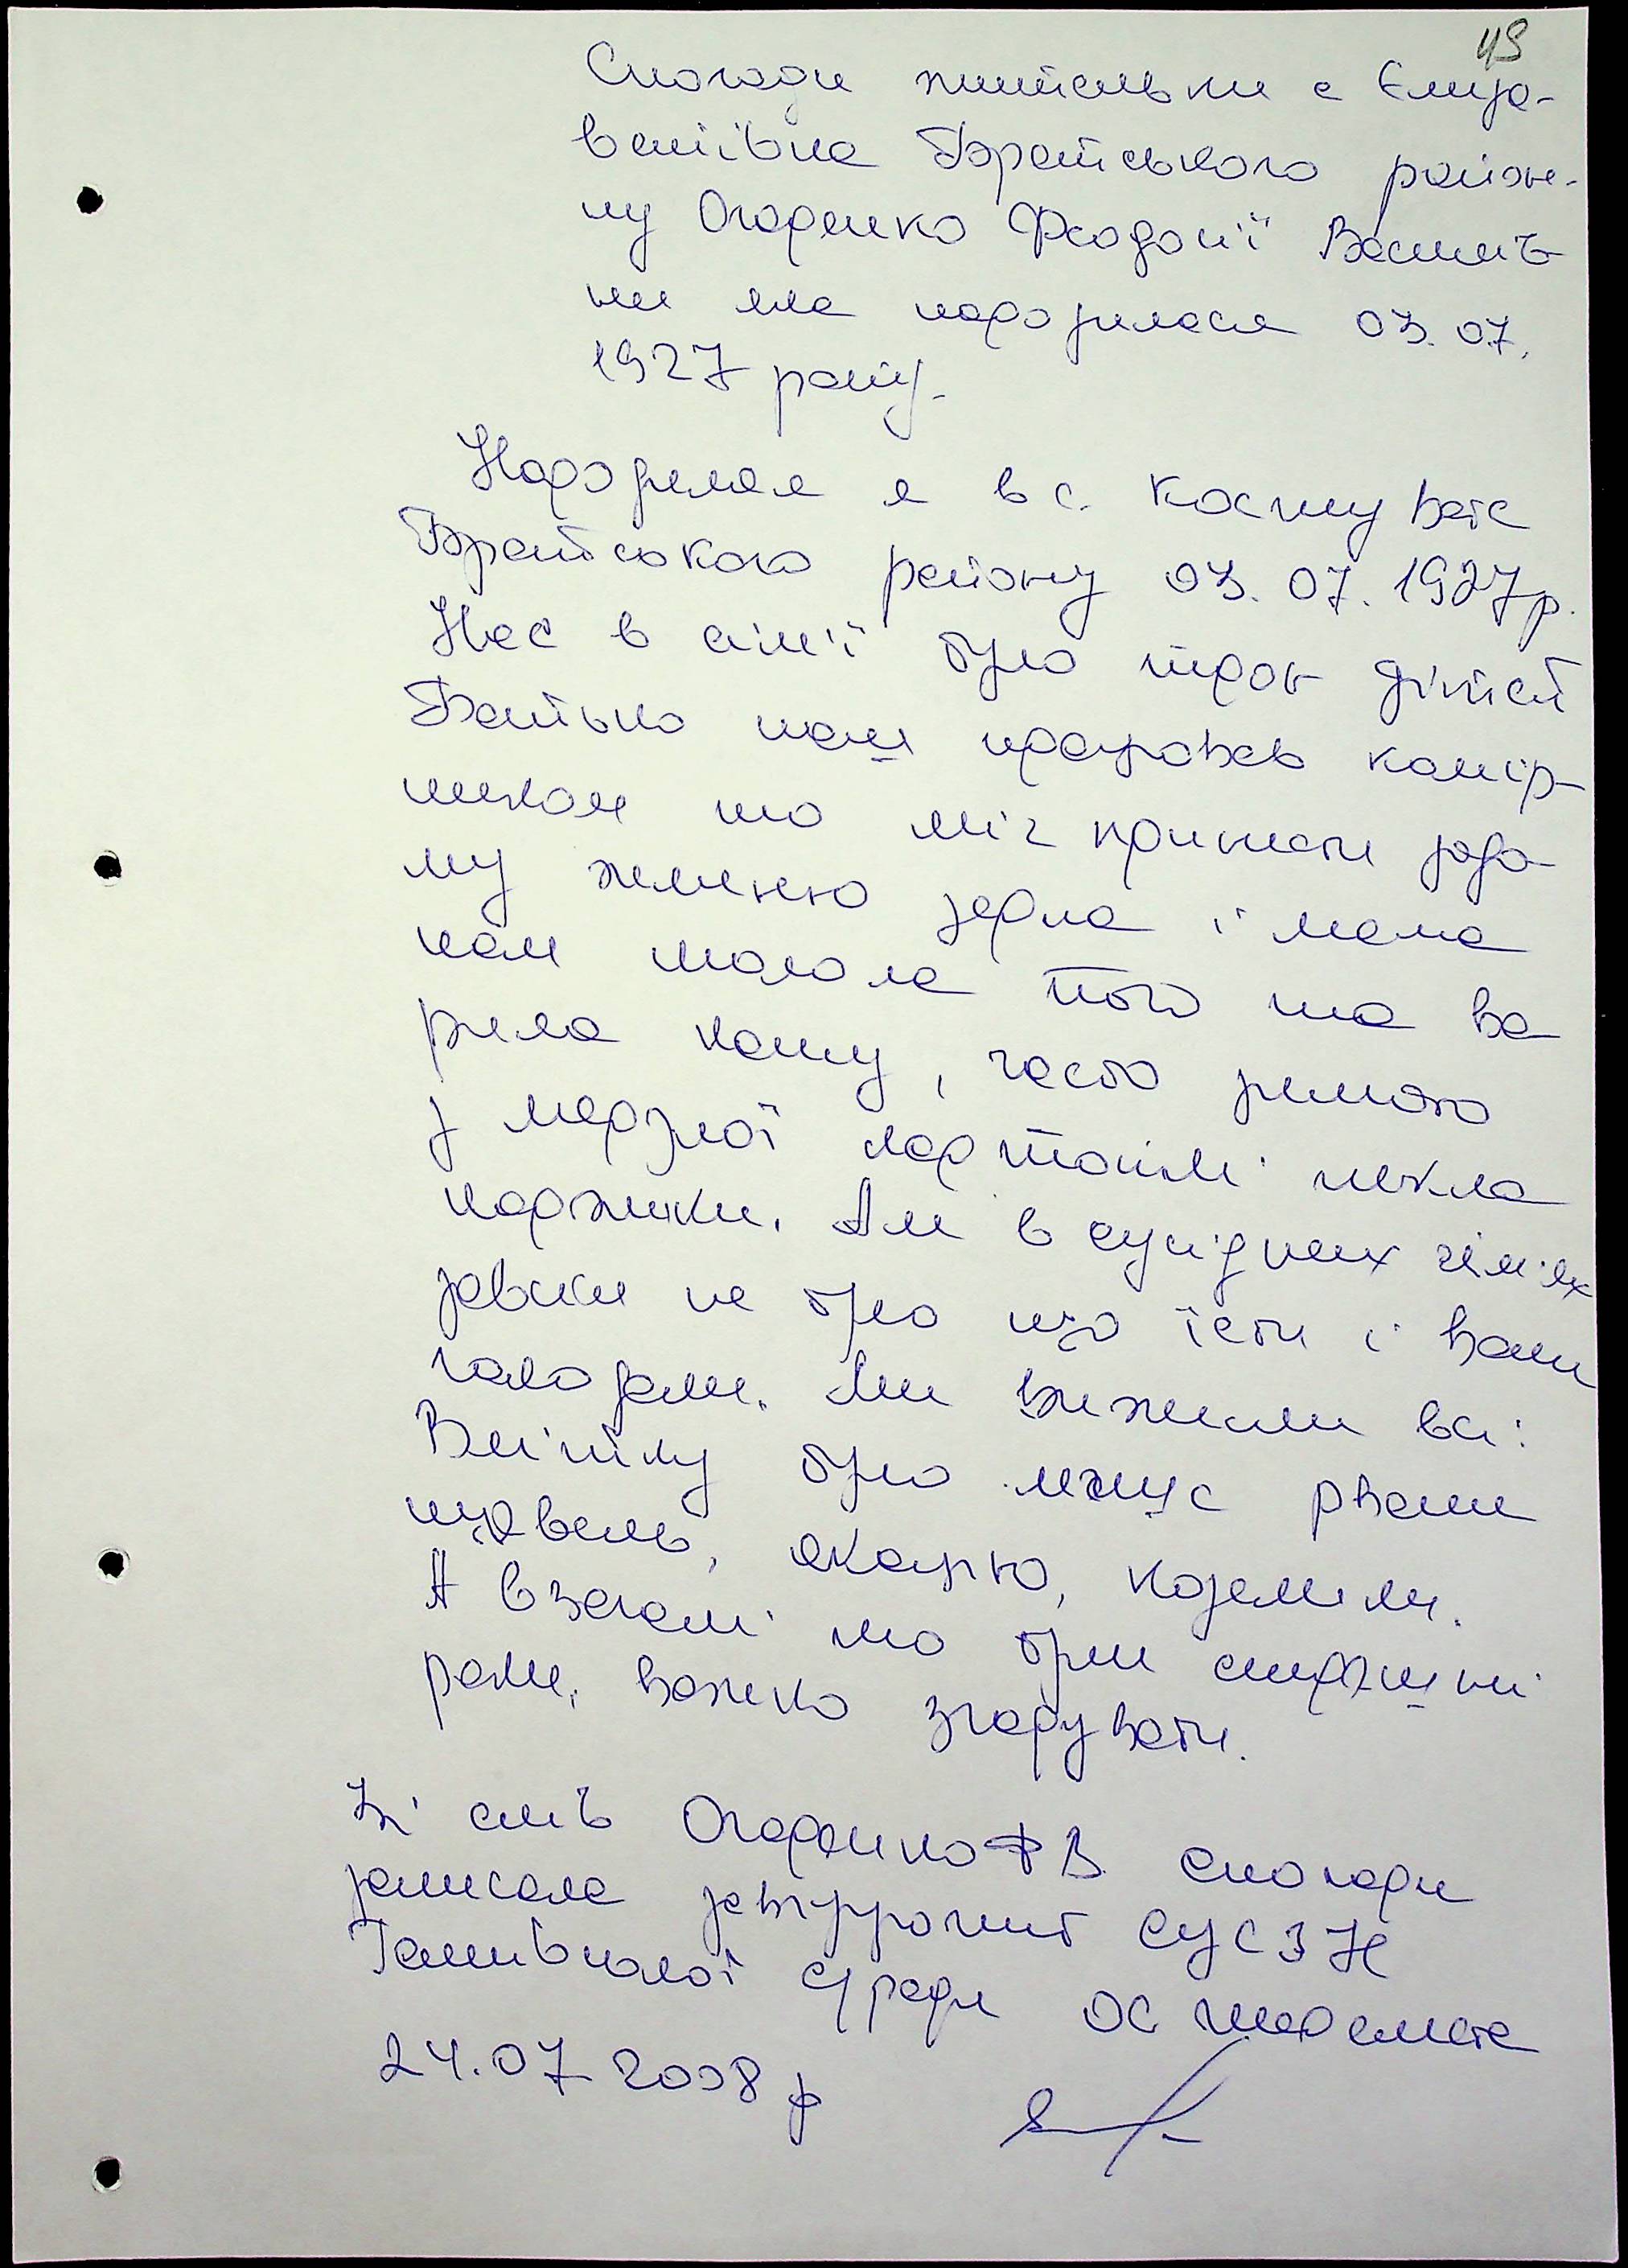 49
Спогади жительки с Єлиза-
ветівка Братського райо-
ну Огоренко Феодосії Василів
ни яка народилася 03.07.
1927 року.
Народилася я в с. Костувате
Братського району 03.07.1927р.
Нас в сім'ї було троє дітей
Батько наш працював комір-
ником то міг принести додо-
му жменю зерна і мама
нам молола його та ва
рила кашу, часто зимою
з мерзлої картоплі пекла
коржики. Але в сусідніх сім'ях
зовсім не було що їсти і вони
голодали. Ми вижили всі.
Влітку було легше рвали
щавель, акацію, козелики.
А взагалі то були страшні
роки, важко згадувати.
Зі слів Огоренко Ф В спогади
записала СУСЗН
Ганнівської с/ради ОС Шеремета
24.07 2008 р